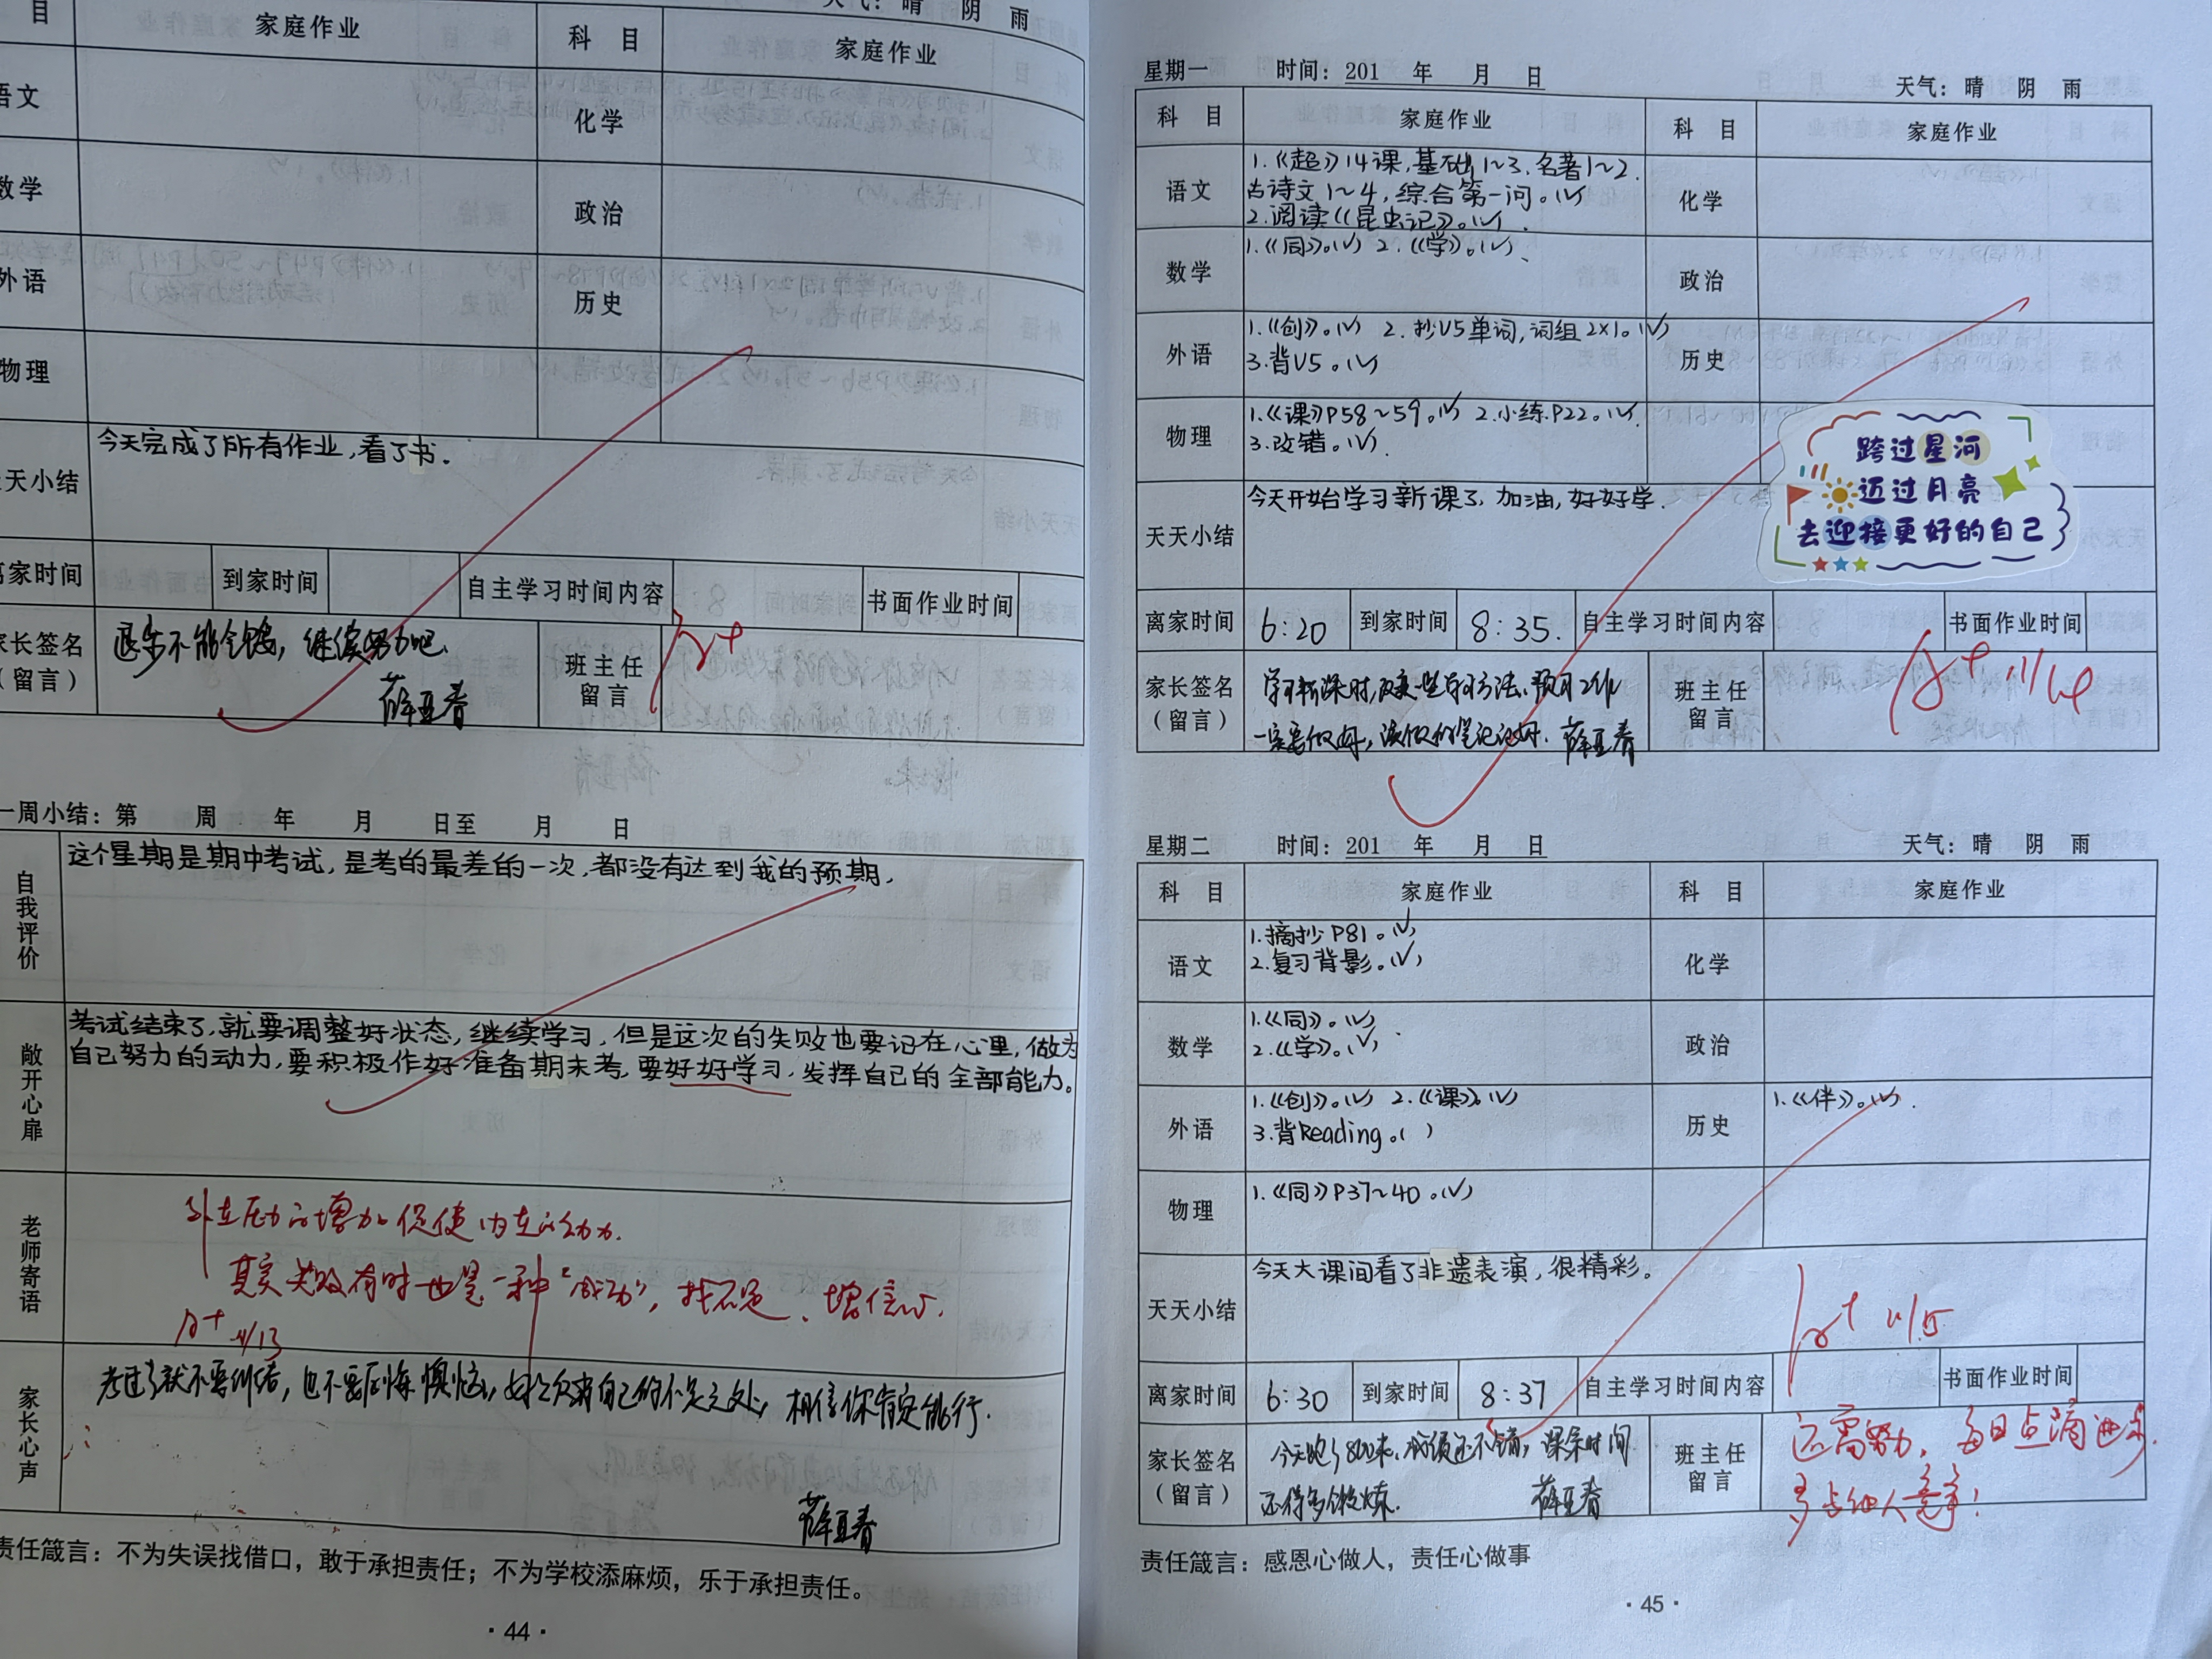 天气：晴 阴 雨
目 家庭作业 科 目 家庭作业
语文 化学
数学 政治
外语 历史
物理
天天小结 今天完成了所有作业，看了书．
离家时间 到家时间 自主学习时间内容 书面作业时间
家长签名（留言） 退步不能气馁，继续努力吧．
薛亚春
班主任留言 A+
一周小结：第 周 年 月 日至 月 日
自我评价 这个星期是期中考试，是考的最差的一次，都没有达到我的预期，
敞开心扉 考试结束了，就要调整好状态，继续学习，但是这次的失败也要记在心里，做为
自己努力的动力，要积极作好准备期末考，要好好学习，发挥自己的全部能力。
老师寄语 外在压力的增加促使内在的动力．
其实失败有时也是一种“成功”，找不足、增信心．
A+ 11/13
家长心声 考过了就不要纠结，也不要后悔懊恼，好好反省自己的不足之处，相信你肯定能行．
薛亚春
责任箴言：不为失误找借口，敢于承担责任；不为学校添麻烦，乐于承担责任。
·44·
星期一 时间：201 年 月 日 天气：晴 阴 雨
科 目 家庭作业 科 目 家庭作业
语文 1.《起》14课，基础1~3，名著1~2．
古诗文1~4，综合第一问。(√)
2.阅读《昆虫记》。(√)．
化学
数学 1.《同》。(√) 2.《学》。(√)
政治
外语 1.《创》。(√) 2.抄U5单词，词组2×1。(√)
3.背U5。(√)
历史
物理 1.《课》P58~59。(√) 2.小练P22。(√)
3.改错。(√)
天天小结 今天开始学习新课了，加油，好好学．
跨过星河
迈过月亮
去迎接更好的自己
离家时间 6:20 到家时间 8:35. 自主学习时间内容 书面作业时间
家长签名（留言） 学习新课时，改变一些学习方法，预习工作
一定要做好，该做的笔记记好． 薛亚春
班主任留言 A+ 11/14
星期二 时间：201 年 月 日 天气：晴 阴 雨
科 目 家庭作业 科 目 家庭作业
语文 1.摘抄P81。(√)
2.复习背影。(√)
化学
数学 1.《同》。(√)
2.《学》。(√)
政治
外语 1.《创》。(√) 2.《课》。(√)
3.背Reading。( )
历史 1.《伴》。(√)．
物理 1.《同》P37~40。(√)
天天小结 今天大课间看了非遗表演，很精彩。
A+ 11/15
离家时间 6:30 到家时间 8:37 自主学习时间内容 书面作业时间
家长签名（留言） 今天跑了800米，成绩还不错，课余时间
还得多锻炼． 薛亚春
班主任留言 还需努力，每日点滴进步．
多与他人竞争！
责任箴言：感恩心做人，责任心做事
·45·